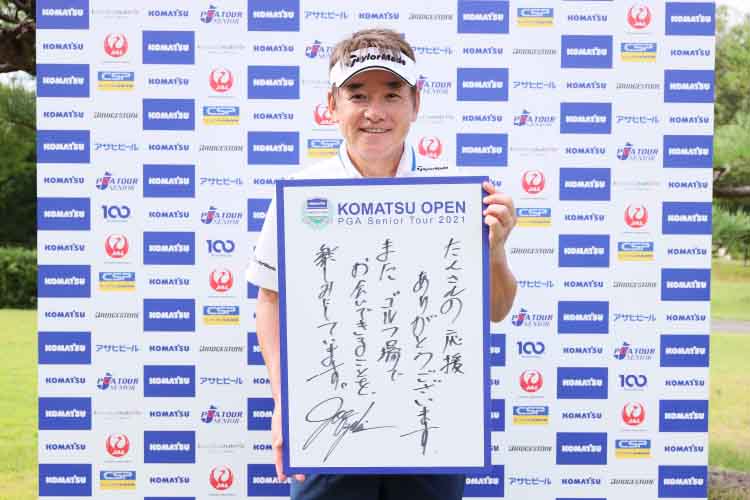 TaylorMade
KOMATSU OPEN
PGA Senior Tour 2021
たくさんの応援
ありがとうございます
また ゴルフ場で
お会いできることを
楽しみにしています。
KOMATSU
アサヒビール
BRIDGESTONE
JAL
CSP
PGA TOUR
SENIOR
100